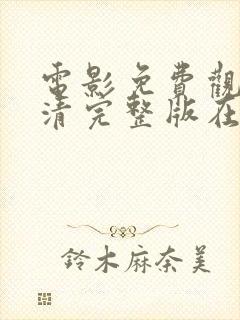 電影免費觀
清完整版在
鈴木麻奈美